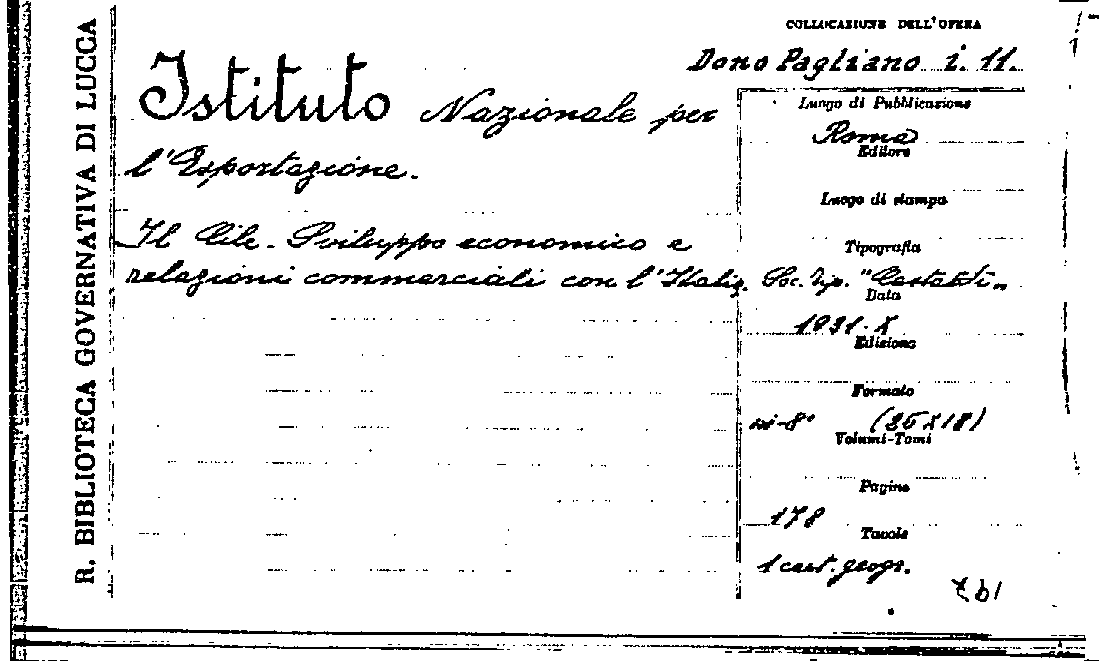 R. BIBLIOTECA GOVERNATIVA DI LUCCA
COLLOCAZIONE DELL'OPERA
Dono Pagliano i. 11.
Istituto Nazionale per
l'Esportazione.
Il Cile - Sviluppo economico e
relazioni commerciali con l'Italia.
Luogo di Pubblicazione
Roma
Editore
Luogo di stampa
Tipografia
Soc. Tip. "Castaldi"
Data
1931-X
Edizione
Formato
in-8° (25X18)
Volumi-Tomi
Pagine
178
Tavole
1 cart. geogr.